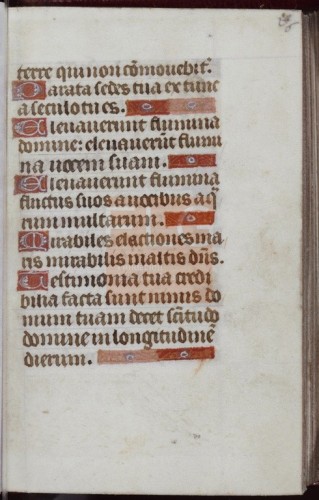 terre qui non cōmovebit᷑.
Parata sedes tua ex tunc
a seculo tu es.
Elevaverunt flumina
domine: elevaverūt flumi
na vocem suam.
Elevaverunt flumina
fluctus suos a vocibus aq̄
rum multarum.
Mirabiles elactiones ma
ris mirabilis in altis dn̄s.
Testimonia tua credi
bilia facta sunt nimis do
mum tuam decet sc̄titudo
domine in longitudinē
dierum.